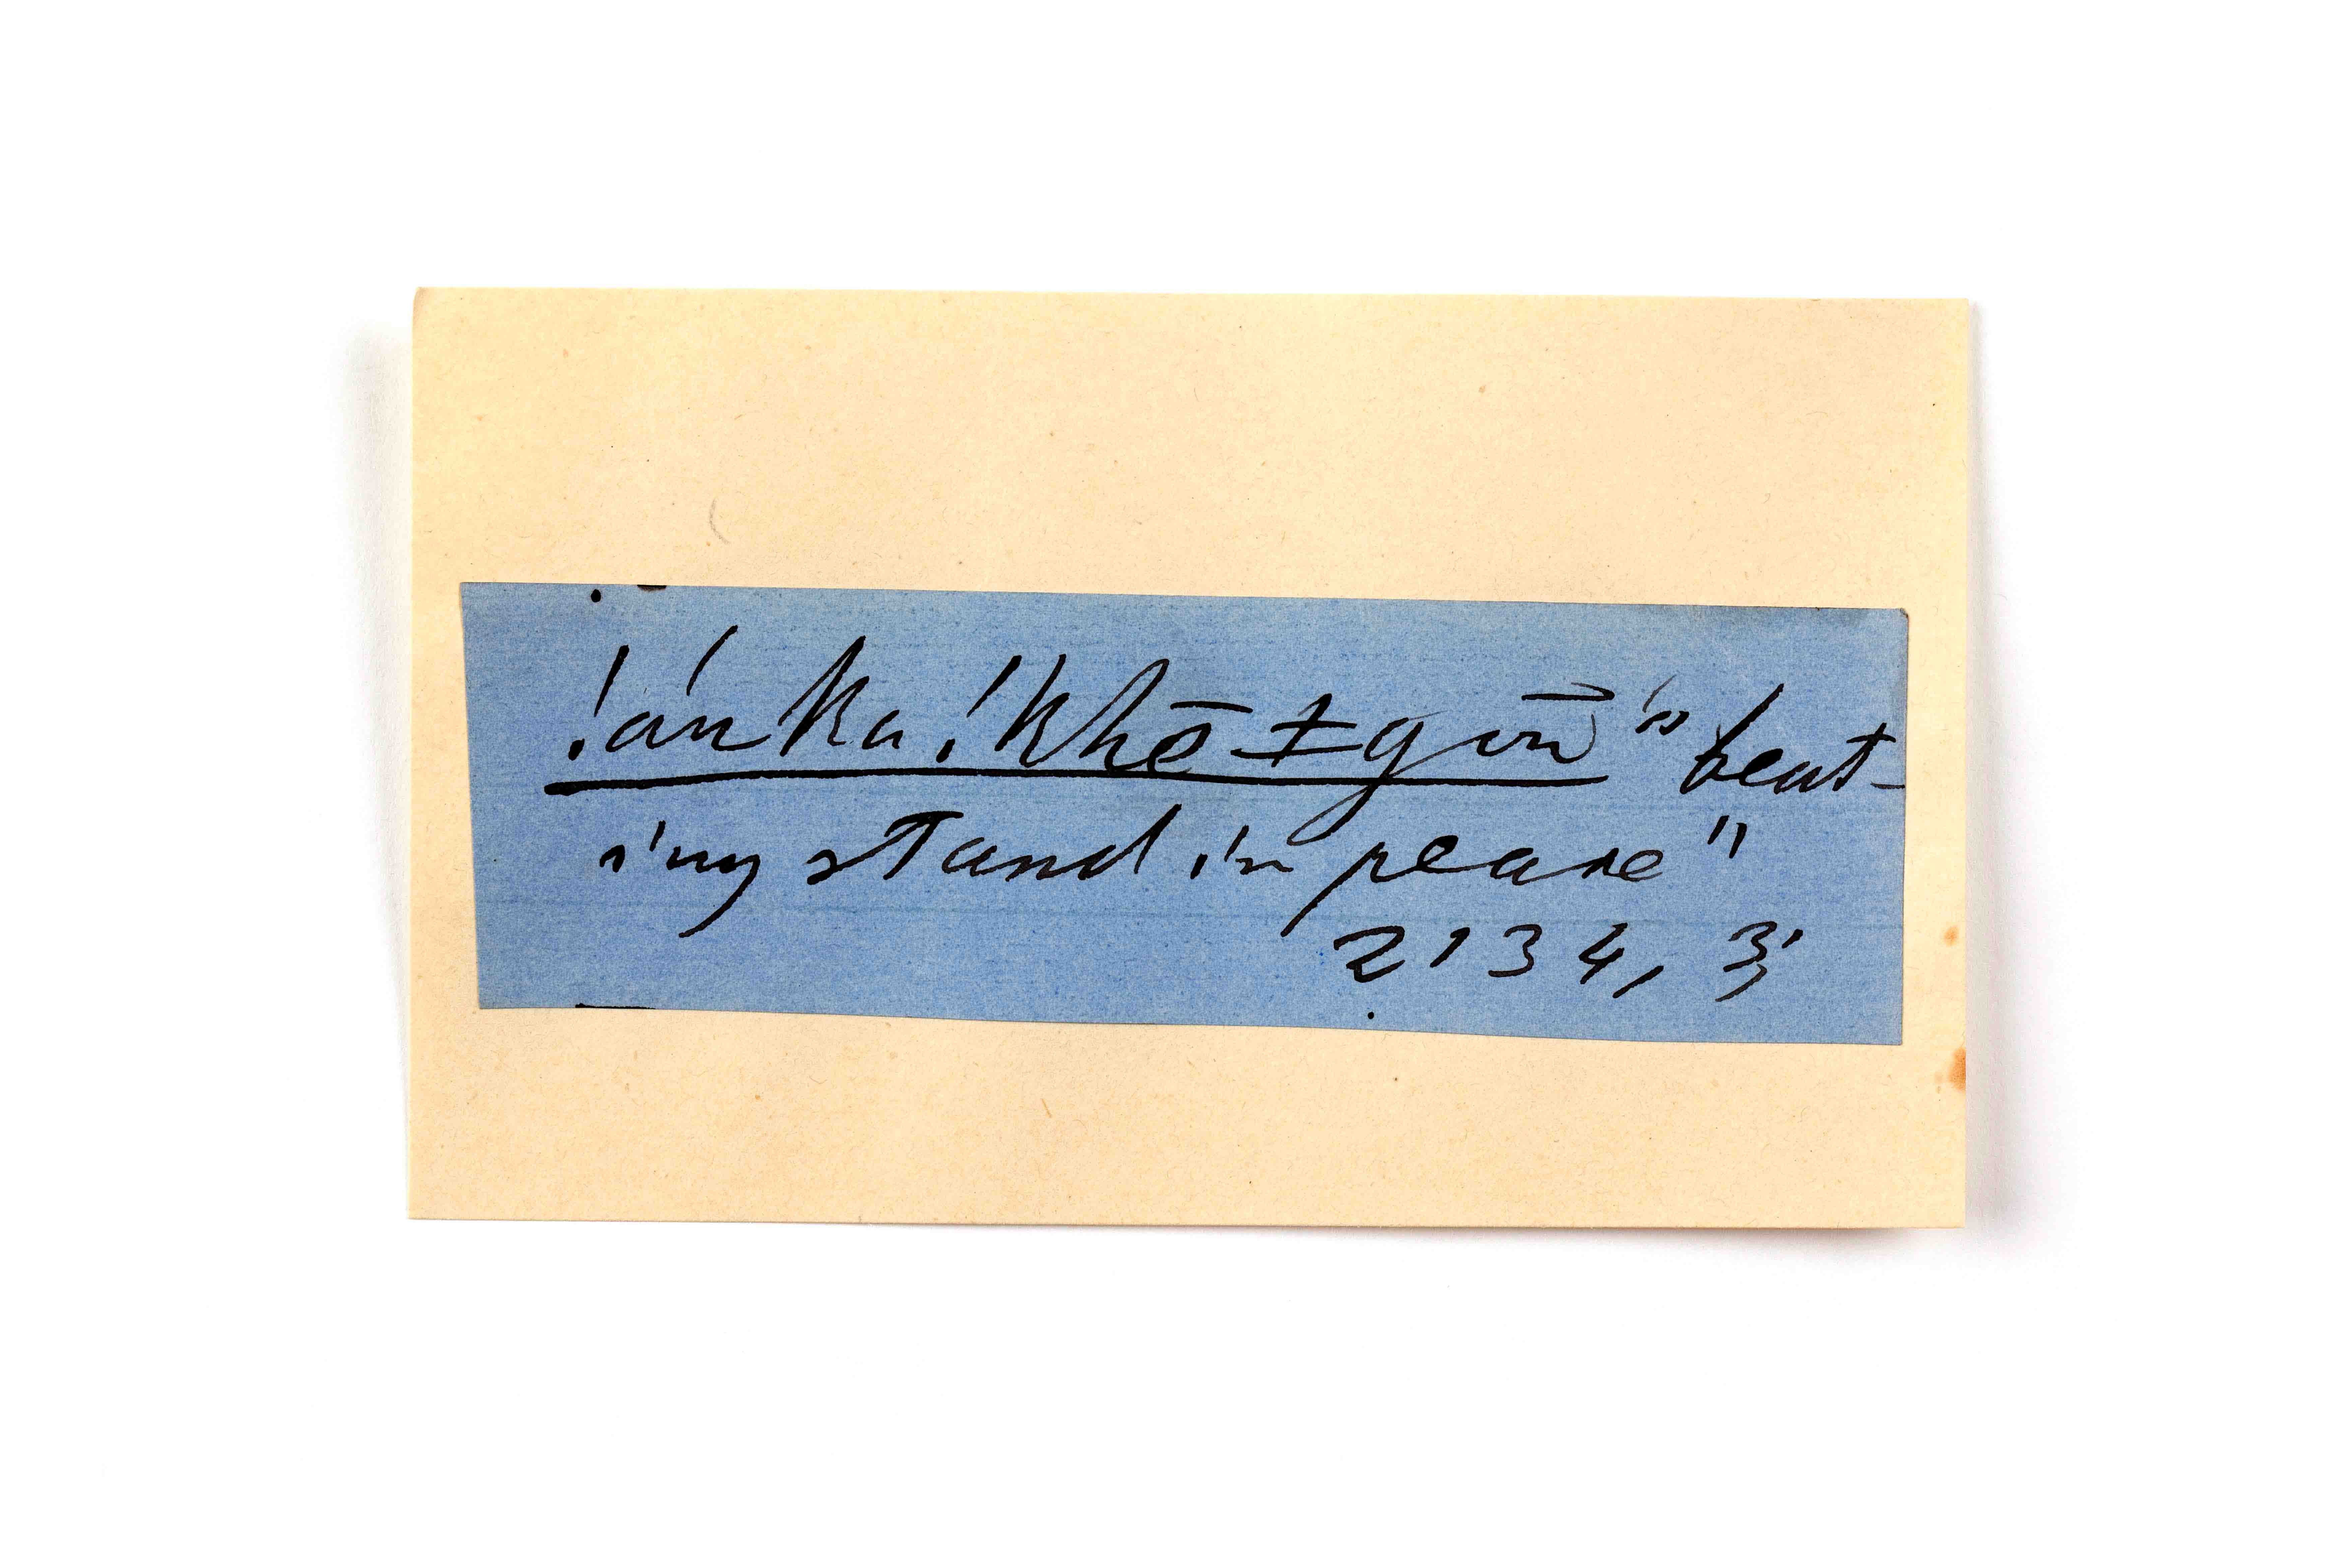 !ánka !khē ǂgōū "beat-
ing stand in peace"
2134, 3;